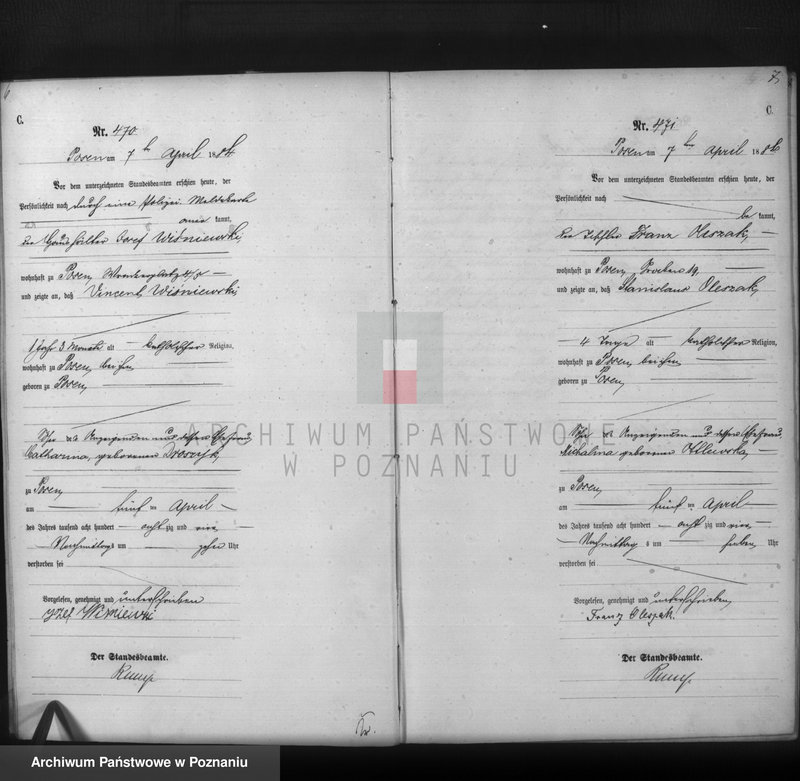 6
C.
Nr. 470
Posen am 7ten April 1884
Vor dem unterzeichneten Standesbeamten erschien heute, der
Persönlichkeit nach durch eine Polizei Meldekarte
kannt,
der Haushälter Josef Wiśniewski,
wohnhaft zu Posen
und zeigte an, daß Vincent Wiśniewski,
1 Jahr 3 Monate alt katholischer Religion,
wohnhaft zu Posen bei ihm
geboren zu Posen,
Sohn des Anzeigenden und dessen Ehefrau
Catharina, geborenen
zu Posen,
am fünf ten April
des Jahres tausend acht hundert acht zig und vier
Nachmittags um zehn Uhr
verstorben sei
Vorgelesen, genehmigt und unterschrieben
Der Standesbeamte.
75
C.
Nr. 471
Posen am 7ten April 1884
Vor dem unterzeichneten Standesbeamten erschien heute, der
Persönlichkeit nach
be kannt,
der Franz Oleszak,
wohnhaft zu Posen, 19,
und zeigte an, daß Stanislaus Oleszak,
4 Tage alt katholischer Religion,
wohnhaft zu Posen bei ihm
geboren zu Posen,
Sohn des Anzeigenden und dessen Ehefrau
Michalina geborenen
zu Posen,
am fünf ten April
des Jahres tausend acht hundert acht zig und vier
Nachmittags um sieben Uhr
verstorben sei
Vorgelesen, genehmigt und unterschrieben
Franz Oleszak.
Der Standesbeamte.
ARCHIWUM PAŃSTWOWE
W POZNANIU
Archiwum Państwowe w Poznaniu